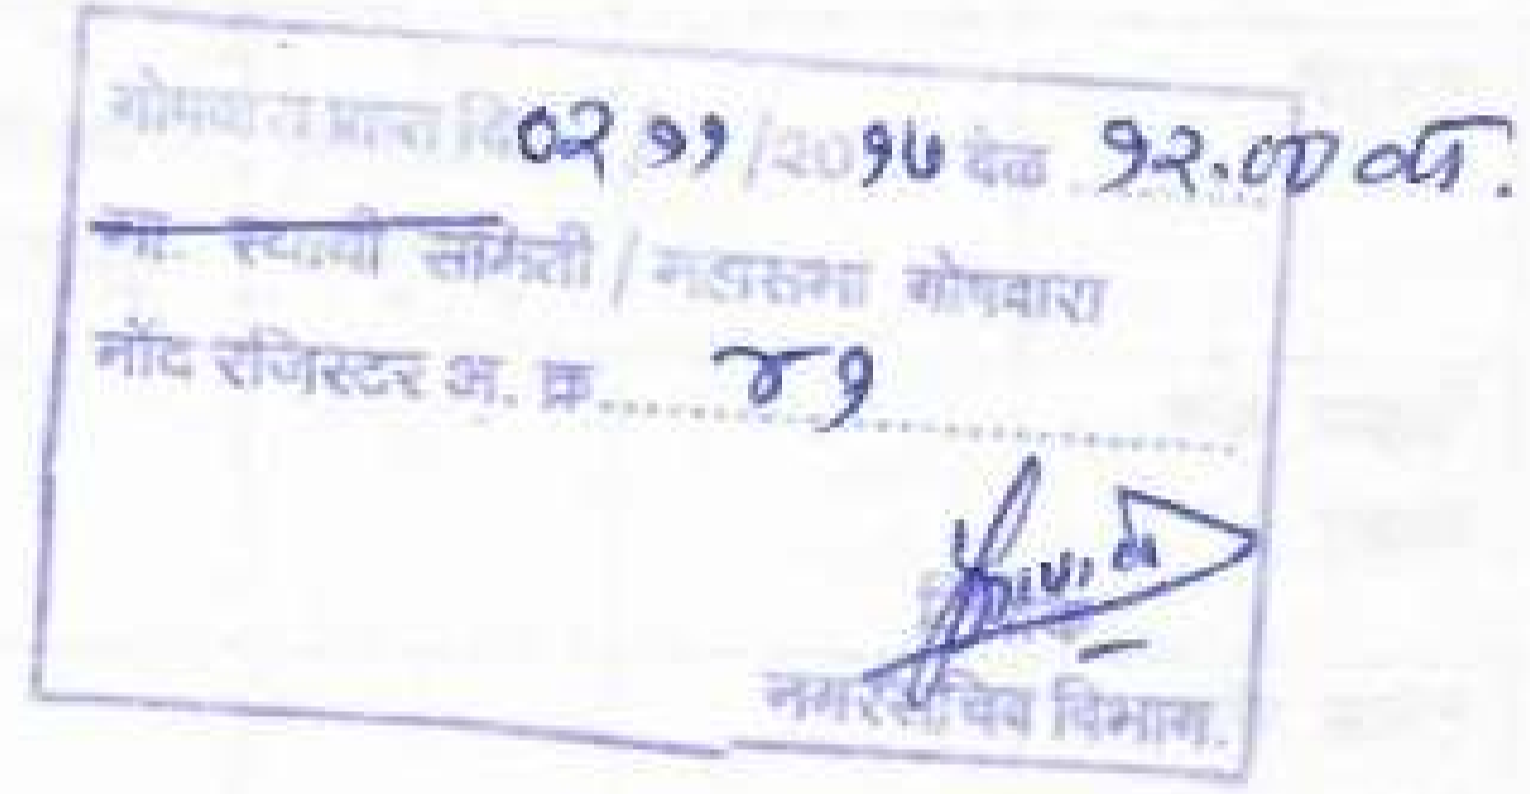 गोषवारा प्राप्त दि ०२/११/२०१७ वेळ १२.०० वा.
मा. स्थायी समिती / महासभा गोषवारा
नोंद रजिस्टर अ. क्र. ४१
नगरसचिव विभाग.